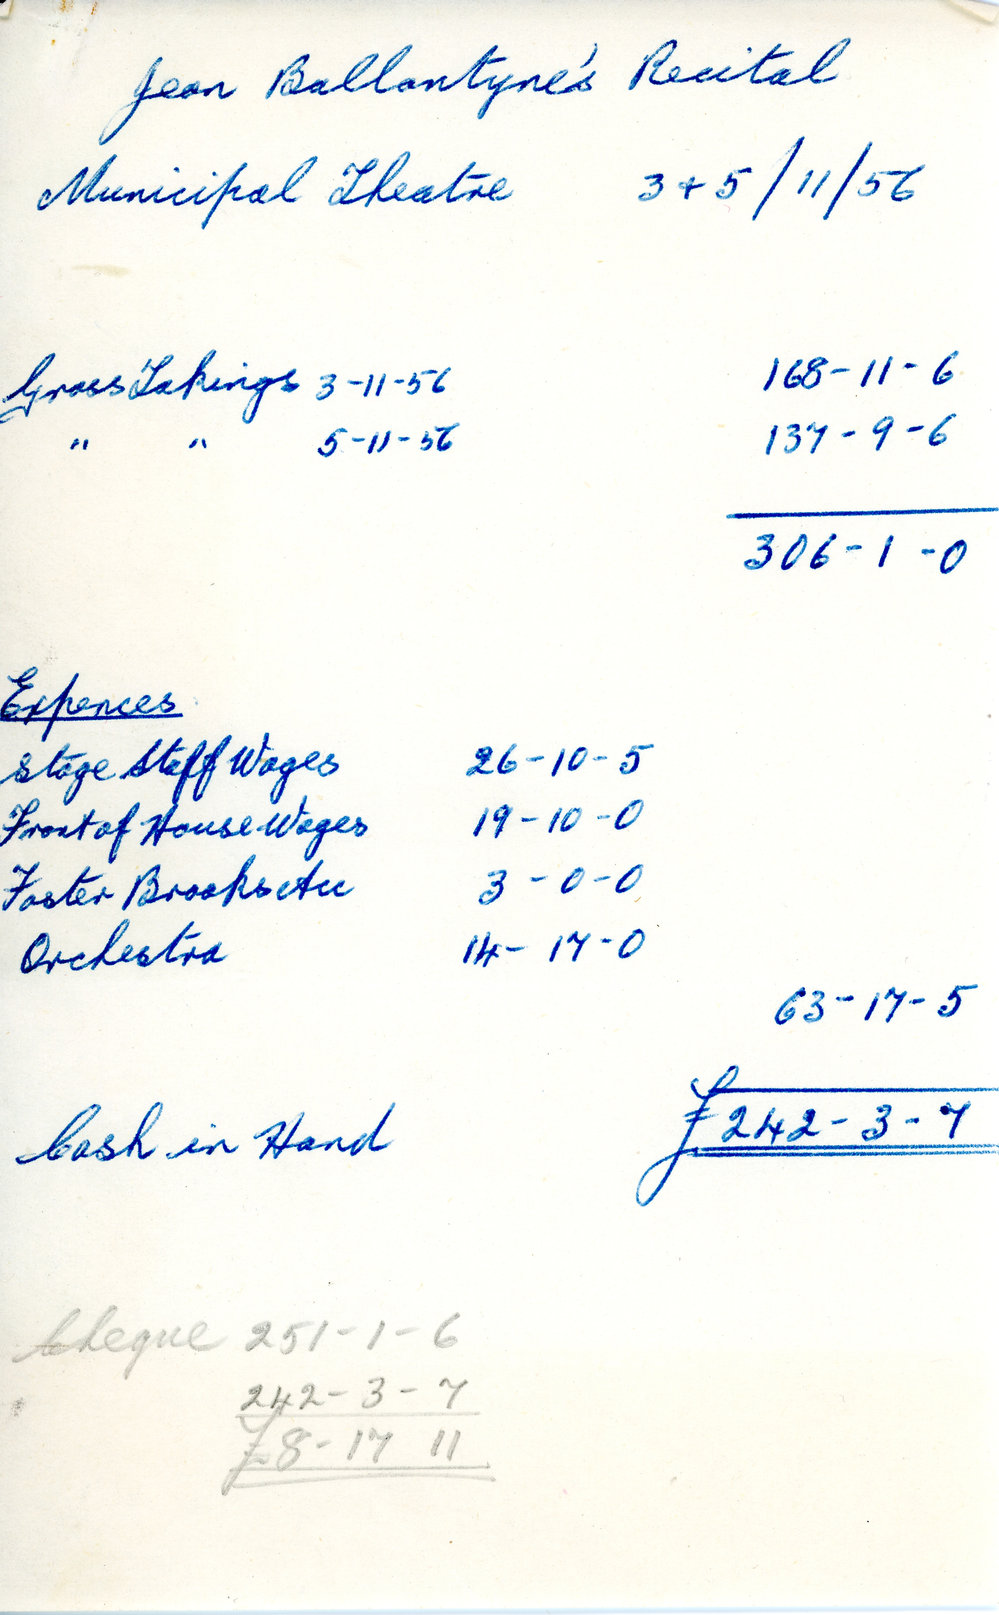 Jean Ballantyne's Recital
Municipal Theatre 3 + 5/11/56
Gross Takings 3-11-56 168-11-6
" " 5-11-56 137-9-6
306-1-0
Expences
Stage Staff Wages 26-10-5
Front of House Wages 19-10-0
Foster Brooks Acc 3-0-0
Orchestra 14-17-0
63-17-5
Cash in Hand £242-3-7
Cheque 251-1-6
242-3-7
£8-17 11